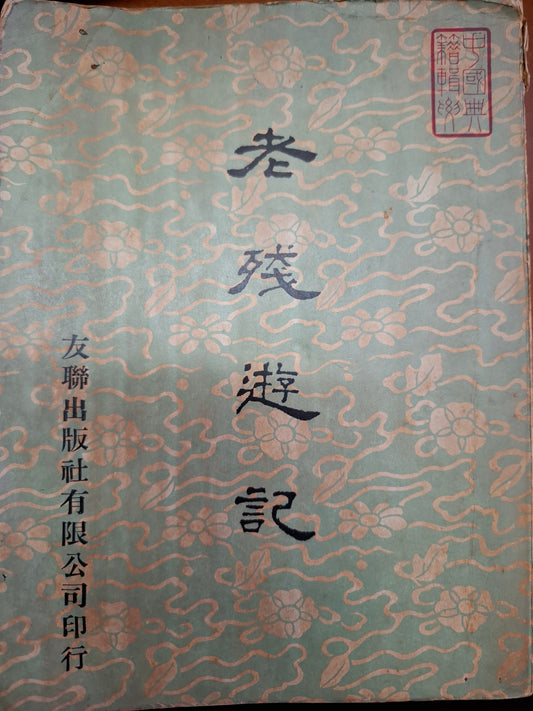 中國典
籍輯要
老殘遊記
友聯出版社有限公司印行